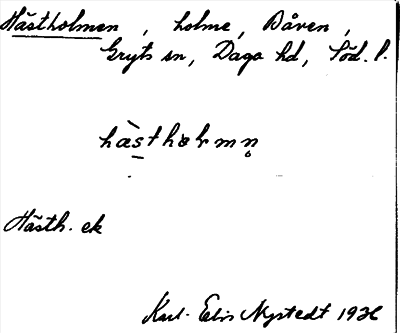 Hästholmen, holme, Båven,
Gryts sn, Daga hd, Söd. l.
hàstholmn̥
Hästh. ek
Karl-Elis Nystedt 1936